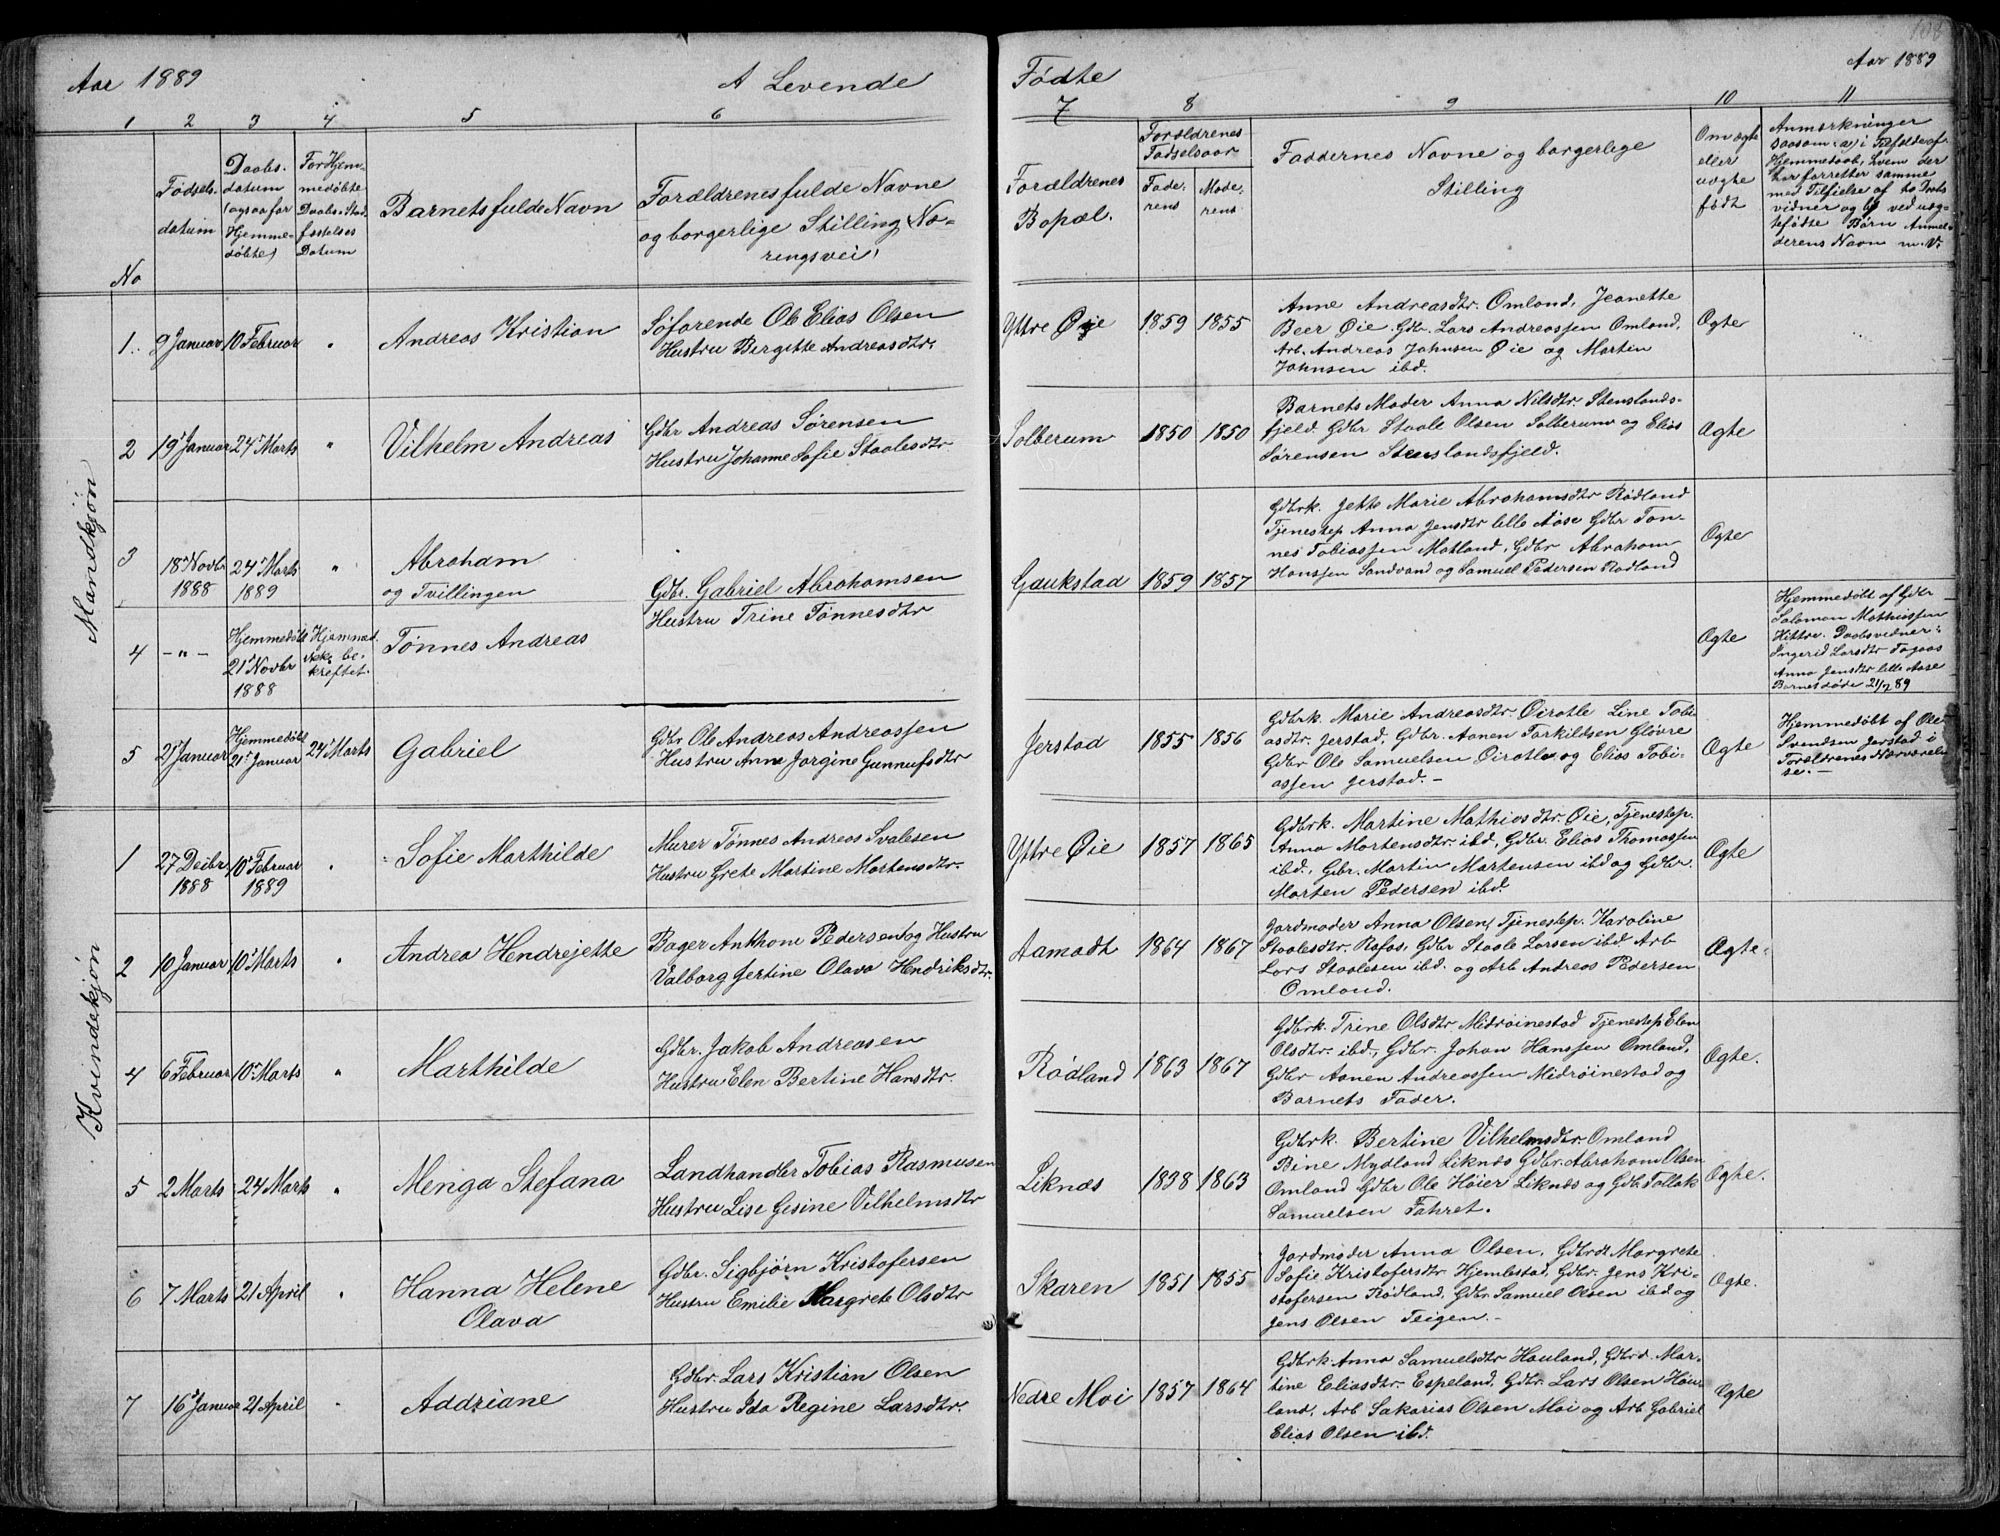 108
Aar 1889
A Levende
Fødte
Aar 1889
1 2 3 4 5 6 7 8 9 10 11
No
Fødsels-
datum
Daabs-
datum
(ogsaa for
Hjemme-
døbte)
For Hjem-
medøbte
Daabs-Stad-
fæstelses
Datum
Barnets fulde Navn
Forældrenes fulde Navne
og borgerlige Stilling (Næ-
ringsvei)
Forældrenes
Bopæl.
Forældrenes
Fødselsaar
Fade-
rens
Mode-
rens
Faddernes Navne og borgerlige
Stilling
Om ægte
eller
uægte
født
Anmærkninger
saasom: a) i Tilfælde af
Hjemmedaab, hvem der
har forrettet samme
med Tilføielse af to Daabs
vidner og b) ved uæg-
tefødte Børn Anmel-
derens Navn m. V.
Mandkjøn
1. 9 Januar 10 Februar " Andreas Kristian
Søfarende Ole Elias Olsen
Hustru Birgitte Andreasdtr.
Yttre Øie 1859 1855
Anne Andreasdtr. Omland, Jeanette
Beer Øie. Gdbr. Lars Andreassen Omland,
Arb. Andreas Johnsen Øie og Martin
Johnsen ibd.
Ægte
2 19' Januar 24' Marts " Vilhelm Andreas
Gdbr Andreas Sørensen
Hustru Johanne Sofie Staalesdtr
Solberum 1850 1850
Barnets Moder Anna Nilsdtr. Stenslands-
fjeld. Gdbr Staale Olsen Solberum og Elias
Sørensen Stenslandsfjeld.
Ægte
3 18' Novbr
1888
24' Marts
1889
" Abraham
og Tvillingen
Gdbr. Gabriel Abrahamsen
Hustru Trine Tønnesdtr
Gaukstad 1859 1857
Gdbrk. Jette Marie Abrahamsdtr Rødland
Tjenestep Anna Jensdtr lille Aase Gdbr Tøn-
nes Tobiassen Motland, Gdbr Abraham
Hanssen Sandvand og Samuel Pedersen Rødland
Ægte
4 -"- Hjemmedøbt
21' Novbr
1888
Hjemmed.
ikke be-
kreftet.
Tønnes Andreas
Ægte
Hjemmedøbt af Gdbr
Salomon Mathiassen
Hittre. Daabsvidner:
Ingerid Larsdtr Tagaas
Anna Jensdtr lille Aase
Barnet døde 21/2 89
5 21' Januar Hjemmedøbt
21' Januar
24' Marts Gabriel
Gdbr Ole Andreas Andreassen
Hustru Anne Jorgine Gunnufsdtr
Jerstad 1855 1856
Gdbrk. Marie Andreasdtr. Øirotle Line Tobi-
asdtr. Jerstad, Gdbr. Aanen Torkildsen Gløvre
Gdbr Ole Samuelsen Øirotle og Elias Tobi-
assen Jerstad. -
Ægte
Hjemmedøbt af Ole
Svendsen Jerstad i
Forældrenes Nærværel-
se. -
Kvindekjøn
1 27 Decbr
1888
10' Februar
1889
" Sofie Marthilde
Murer Tønnes Andreas Svalesen
Hustru Grete Martine Mortensdtr.
Yttre Øie 1857 1865
Gdbrk. Martine Mathiasdtr. Øie, Tjenestep.
Anna Mortensdtr. ibd, Gdbr. Elias Thomassen
ibd., Gbr. Martin Martensen ibd og Gdbr.
Morten Pedersen ibd.
Ægte
2 10 Januar 10' Marts " Andrea Hendrejette
Bager Anthoni Pedersen og Hustru
Valborg Jertine Olava Hendriksdtr.
Aamodt 1864 1867
Jordmoder Anna Olsen, Tjenestep. Karoline
Staalesdtr. Rafos, Gdbr Staale Larsen ibd Arb
Lars Staalesen ibd. og Arb Andreas Pedersen
Omland.
Ægte.
4 6 Februar 10' Marts " Marthilde
Gdbr. Jakob Andreasen
Hustru Elen Bertine Hansdtr.
Rødland 1863 1867
Gdbrk. Trine Olsdtr Midrøinestad Tjenestep Elen
Olsdtr. ibd., Gdbr. Johan Hanssen Omland,
Gdbr Aanen Andreassen Midrøinestad og
Barnets Fader.
Ægte.
5 2 Marts 24 Marts " Menga Stefana
Landhandler Tobias Rasmusen
Hustru Lise Gesine Vilhelmsdtr
Liknæs 1838 1863
Gdbrk. Bertine Vilhelmsdtr. Omland
Bine Mydland Liknæs Gdbr. Abraham Olsen
Omland Gdbr Ole Høier Liknæs og Gdbr. Sollak
Samuelsen Fahret.
Ægte.
6 7 Marts 21 April " Hanna Helene
Olava
Gdbr. Sigbjørn Kristofersen
Hustru Emilie Margrete Olsdtr
Skaren 1851 1855
Jordmoder Anna Olsen, Gdbrdt Margrete
Sofie Kristofersdtr Hjemlestad, Gdbr. Jens Kri-
stofersen Rødland, Gdbr Samuel Olsen ibd og
Jens Olsen Teigen. -
Ægte.
7 16' Januar 21 April " Addziane
Gdbr. Lars Kristian Olsen
Hustru Ida Regine Larsdtr.
Nedre Moi 1857 1864
Gdbrk. Anna Samuelsdtr Houland, Gdbrd. Mar-
tine Eliasdtr. Espeland, Gdbr. Lars Olsen Hou-
land, Arb Sakarias Olsen Moi og Arb Gabriel
Elias Olsen ibd.
Ægte